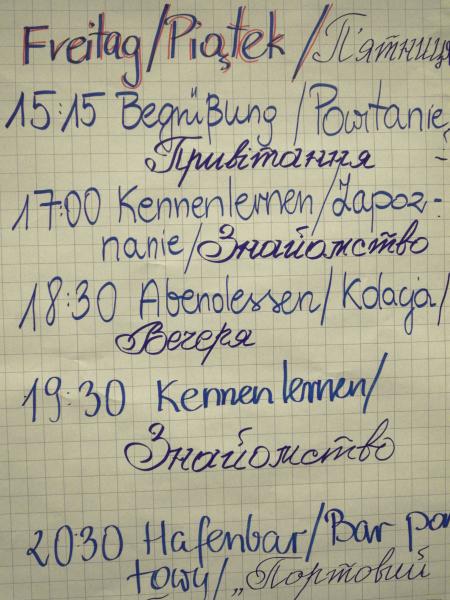 Freitag/Piątek/П'ятниця
15:15 Begrüßung/Powitanie/
Привітання
17:00 Kennenlernen/Zapoz-
nanie/Знайомство
18:30 Abendessen/Kolacja/
Вечеря
19:30 Kennenlernen/
Знайомство
20:30 Hafenbar/Bar por
towy/„Портовий